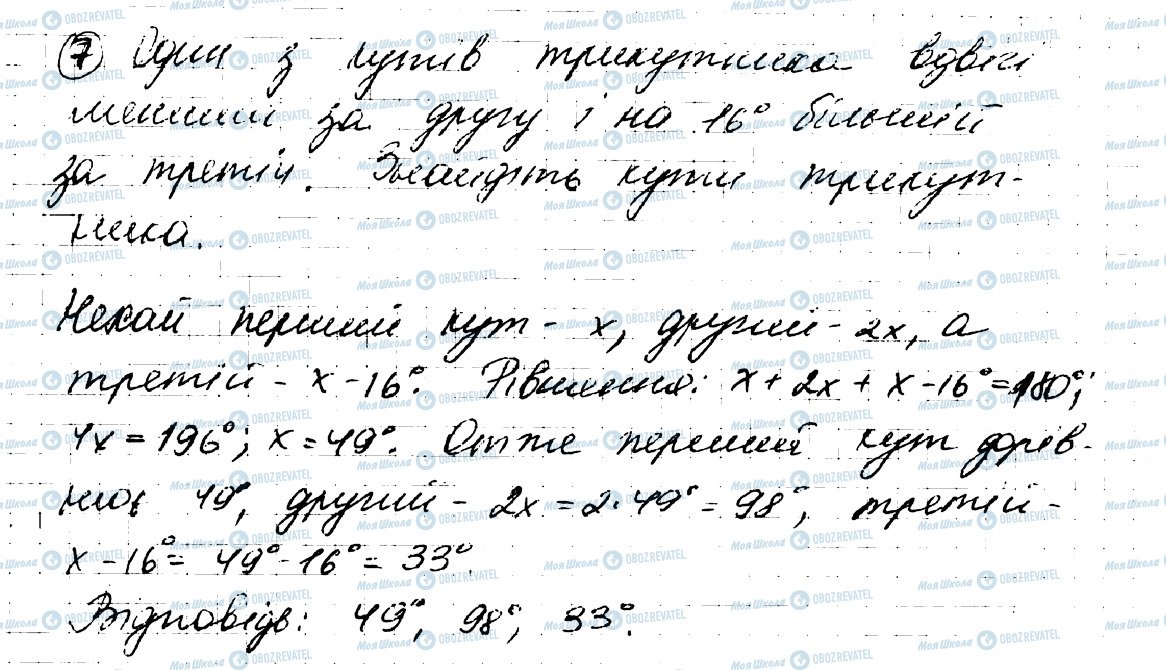 7 Один з кутів трикутника вдвічі
менший за другу і на 16° більший
за третій. Знайдіть кути трикут-
ника.
Нехай перший кут - x, другий - 2x, а
третій - x - 16°. Рівняння: x + 2x + x - 16° = 180°;
4x = 196°; x = 49°. Отже перший кут дорів-
нює 49°, другий - 2x = 2·49° = 98°, третій -
x - 16° = 49° - 16° = 33°.
Відповідь: 49°, 98°, 33°.